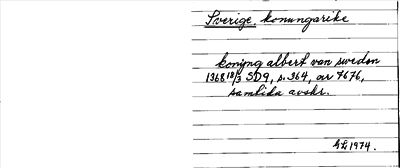 Sverige, konungarike
koning albert van sweden
1368 18/3 SD9, s. 364, nr 7676,
samtida avskr.
1974.